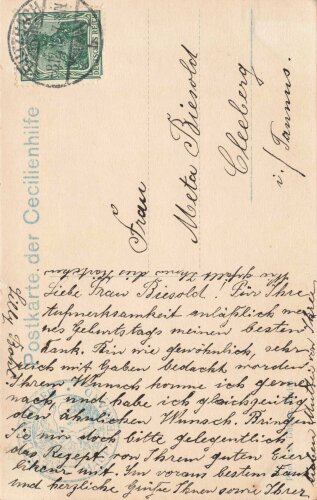 Postkarte der Cecilienhilfe
DEUTSCHES REICH
Frau
Meta Biesold
Cleeberg
i/Taunus.
Wie gefällt Ihnen das Kärtchen
Liebe Frau Biesold! Für Ihre
Aufmerksamkeit anläßlich mei-
nes Geburtstags meinen besten
Dank. Bin wie gewöhnlich, sehr
reich mit Gaben bedacht worden.
Ihrem Wunsch komme ich gern
nach, und habe ich gleichzeitig
den ähnlichen Wunsch. Bringen
Sie mir doch bitte gelegentlich
das Rezept von Ihrem guten Eier-
likeur mit. Im voraus besten Dank
und herzliche Grüße Ihnen sowie Ihrer
lieben Mutter von Ihrer
Lilly